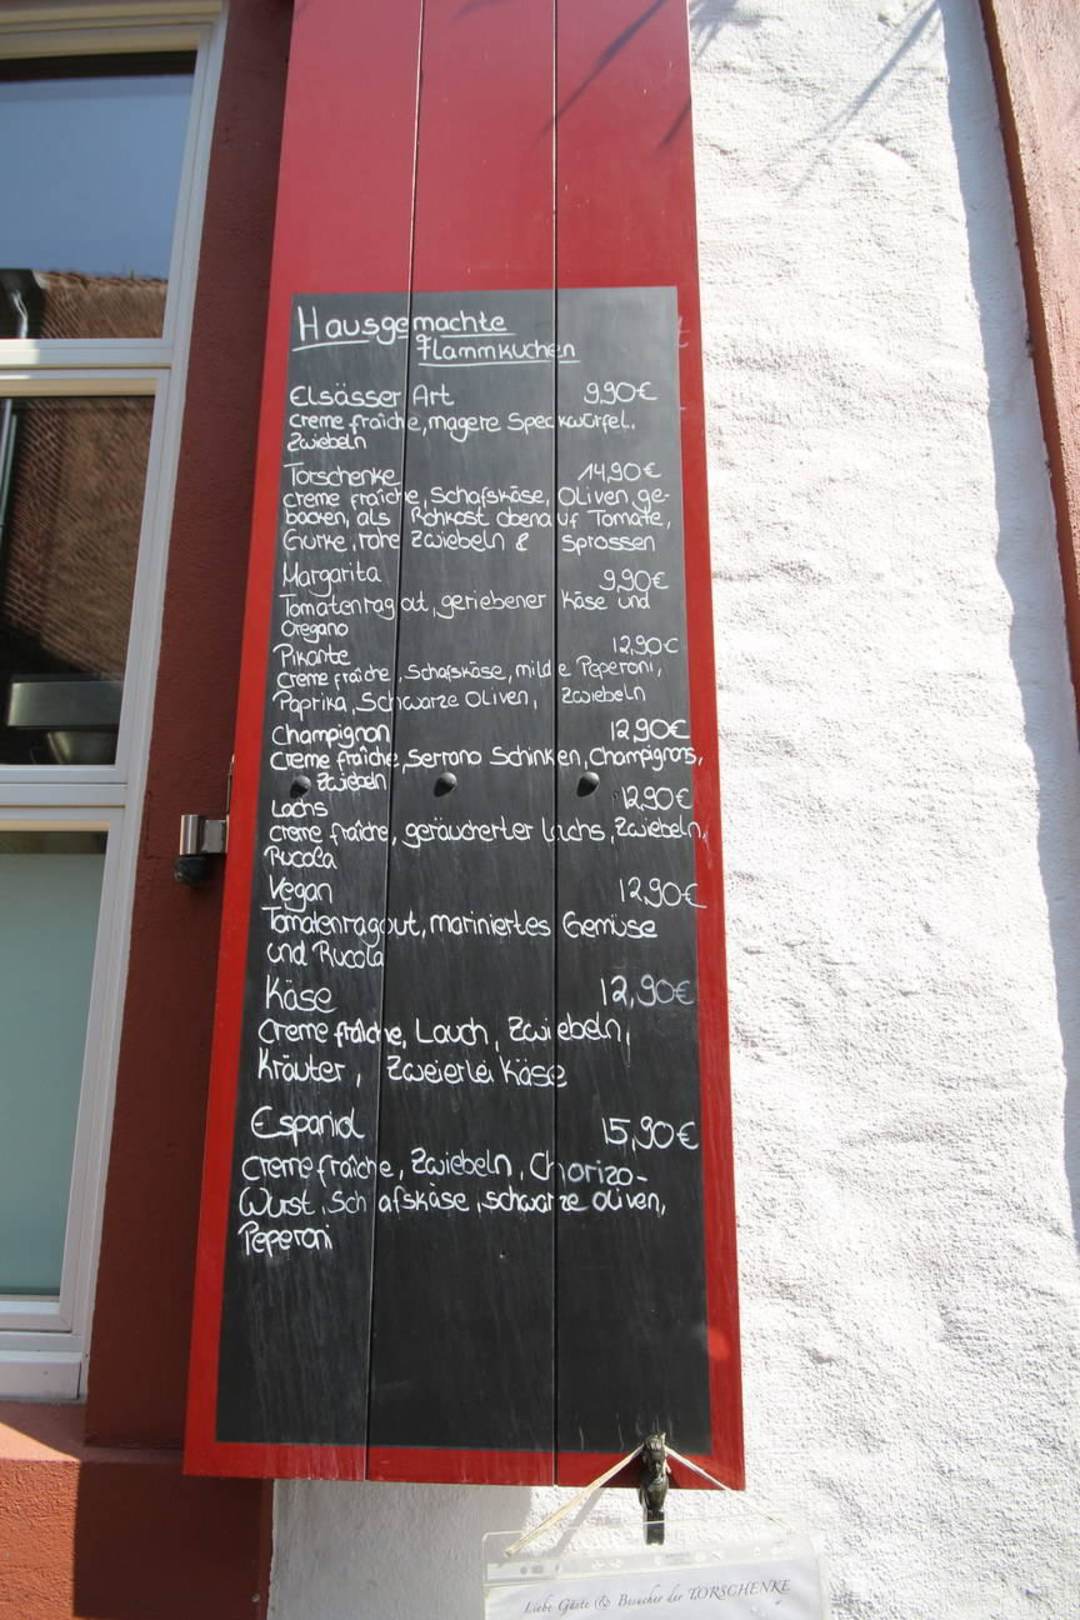 Hausgemachte
Flammkuchen
Elsässer Art 9,90€
creme fraîche, magere Speckwürfel.
Zwiebeln
Torschenke 14,90€
creme fraîche, Schafskäse, Oliven, ge-
backen, als Rohkost obenauf Tomate,
Gurke, rohe Zwiebeln & Sprossen
Margarita 9,90€
Tomatenragout, geriebener Käse und
Oregano
Pikante 12,90€
Creme fraîche, Schafskäse, milde Peperoni,
Paprika, Schwarze Oliven, Zwiebeln
Champignon 12,90€
Creme fraîche, Serrano Schinken, Champignons,
Zwiebeln
Lachs 12,90€
creme fraîche, geräucherter Lachs, Zwiebeln,
Rucola
Vegan 12,90€
Tomatenragout, mariniertes Gemüse
und Rucola
Käse 12,90€
Creme fraîche, Lauch, Zwiebeln,
Kräuter, Zweierlei Käse
Espaniol 15,90€
creme fraîche, Zwiebeln, Chorizo-
Wurst, Schafskäse, schwarze oliven,
Peperoni
Liebe Gäste & Besucher der TORSCHENKE